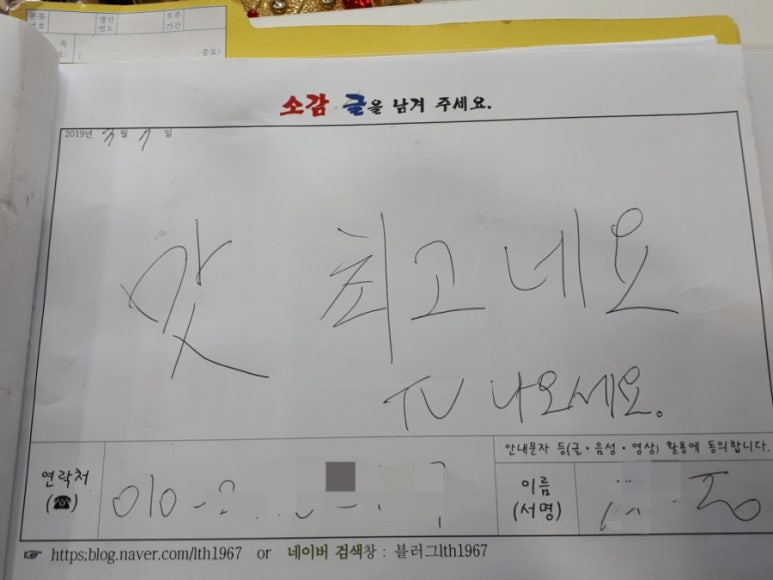 분류 번호 생산 년도 보존 기간
소감 글을 남겨 주세요.
2019년 월 일
맛 최고네요
TV 나오세요.
안내문자 등(글·음성·영상) 활용에 동의합니다.
연락처 (☎) 010-
이름 (서명)
☞ https;blog.naver.com/lth1967 or 네이버 검색창 : 블러그lth1967